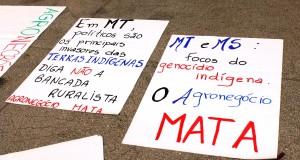 AGRONEGÓ
Em MT,
políticos são
os principais
invasores das
TERRAS INDÍGENAS
DIGA NÃO A
BANCADA
RURALISTA
AGRONEGÓCIO MATA
MT e MS:
focos do
genocídio
indígena.
O Agronegócio
MATA